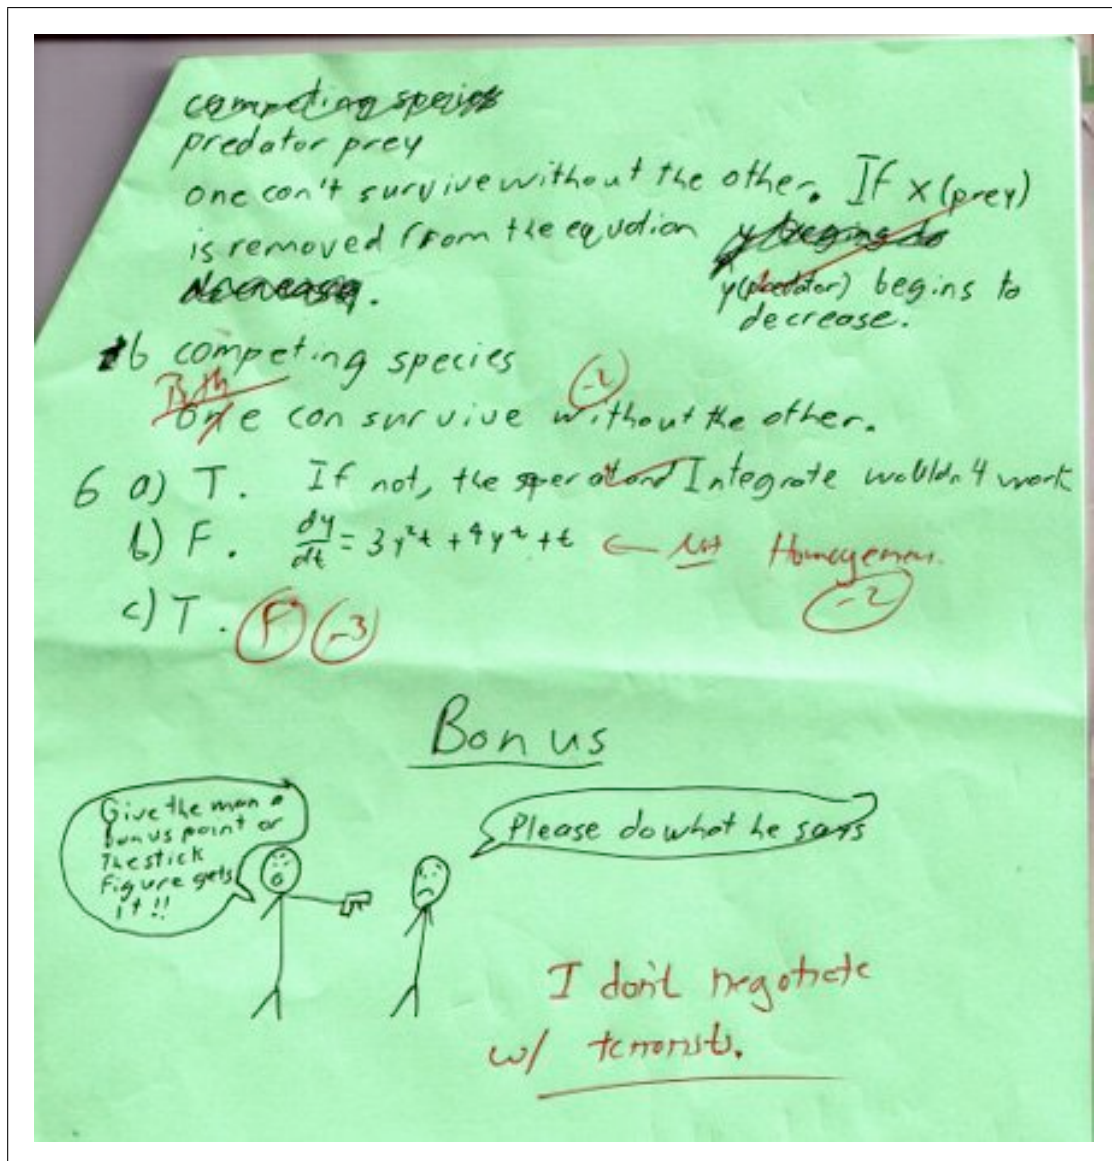 competing species
predator prey
one can't survive without the other. If x (prey)
is removed from the equation y begins to
decrease.
y(predator) begins to
decrease.
b competing species
Both
-2
one can survive without the other.
6 a) T. If not, the Integrate wouldn't work
b) F. dy/dt = 3y²t + 4yt + t ← Not Homogeneous.
-2
c) T. F -3
Bonus
Give the man a
bonus point or
The stick
Figure gets
it!!
Please do what he says
I don't negotiate
w/ terrorists.